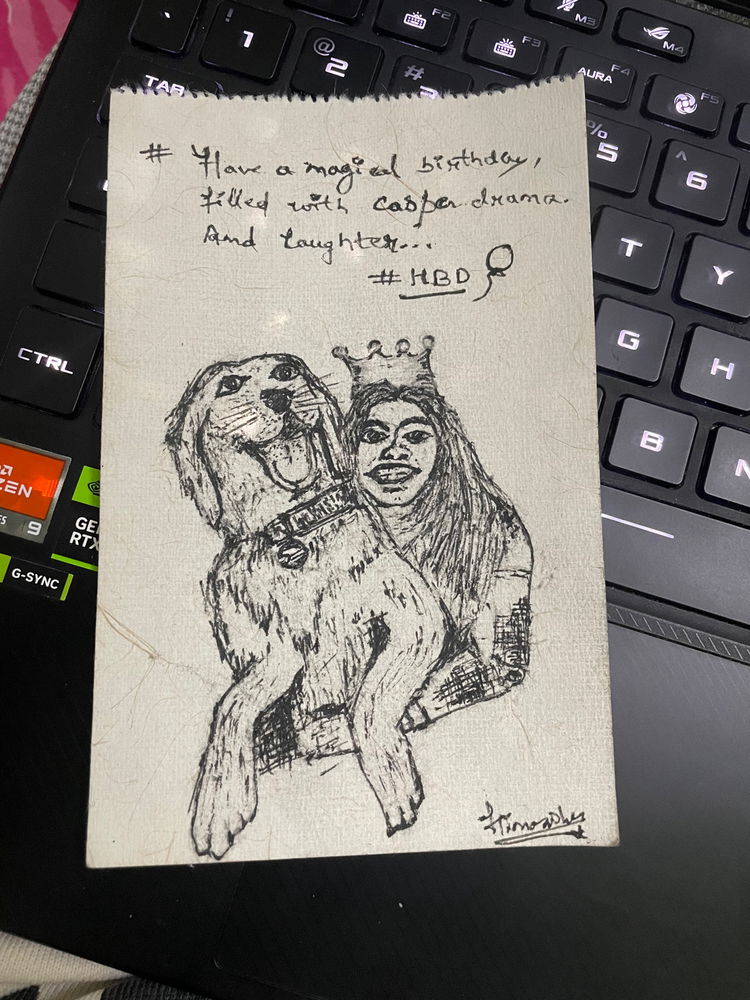 M3
M4
F2
F3
F4
F5
AURA
! 1
@ 2
# 3
% 5
^ 6
TAB
T
Y
G
H
B
N
CTRL
ZEN
9
G-SYNC
# Have a magical birthday,
filled with casper drama.
And laughter...
# HBD